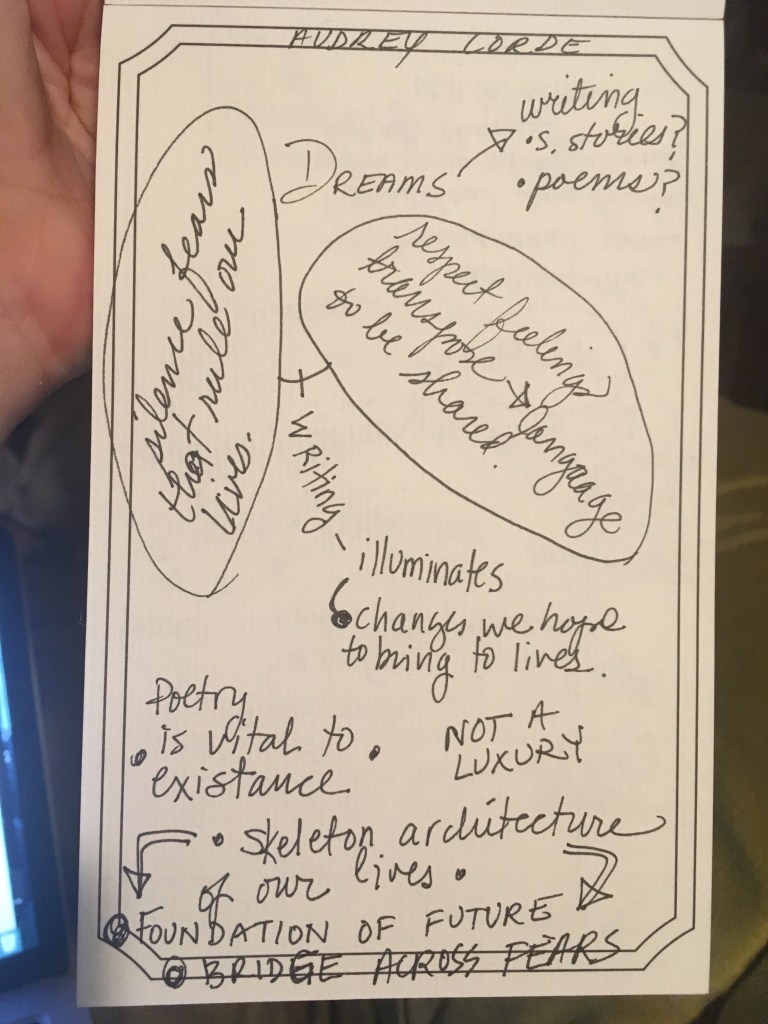 AUDREY LORDE
writing
• s. stories?
• poems?
DREAMS
silence fears
that rule our
lives.
respect feelings
transpose → language
to be shared.
+ WRITING -
illuminates
changes we hope
to bring to lives.
Poetry
• is vital to •
existance
NOT A
LUXURY
• skeleton architecture
of our lives •
FOUNDATION OF FUTURE
BRIDGE ACROSS FEARS